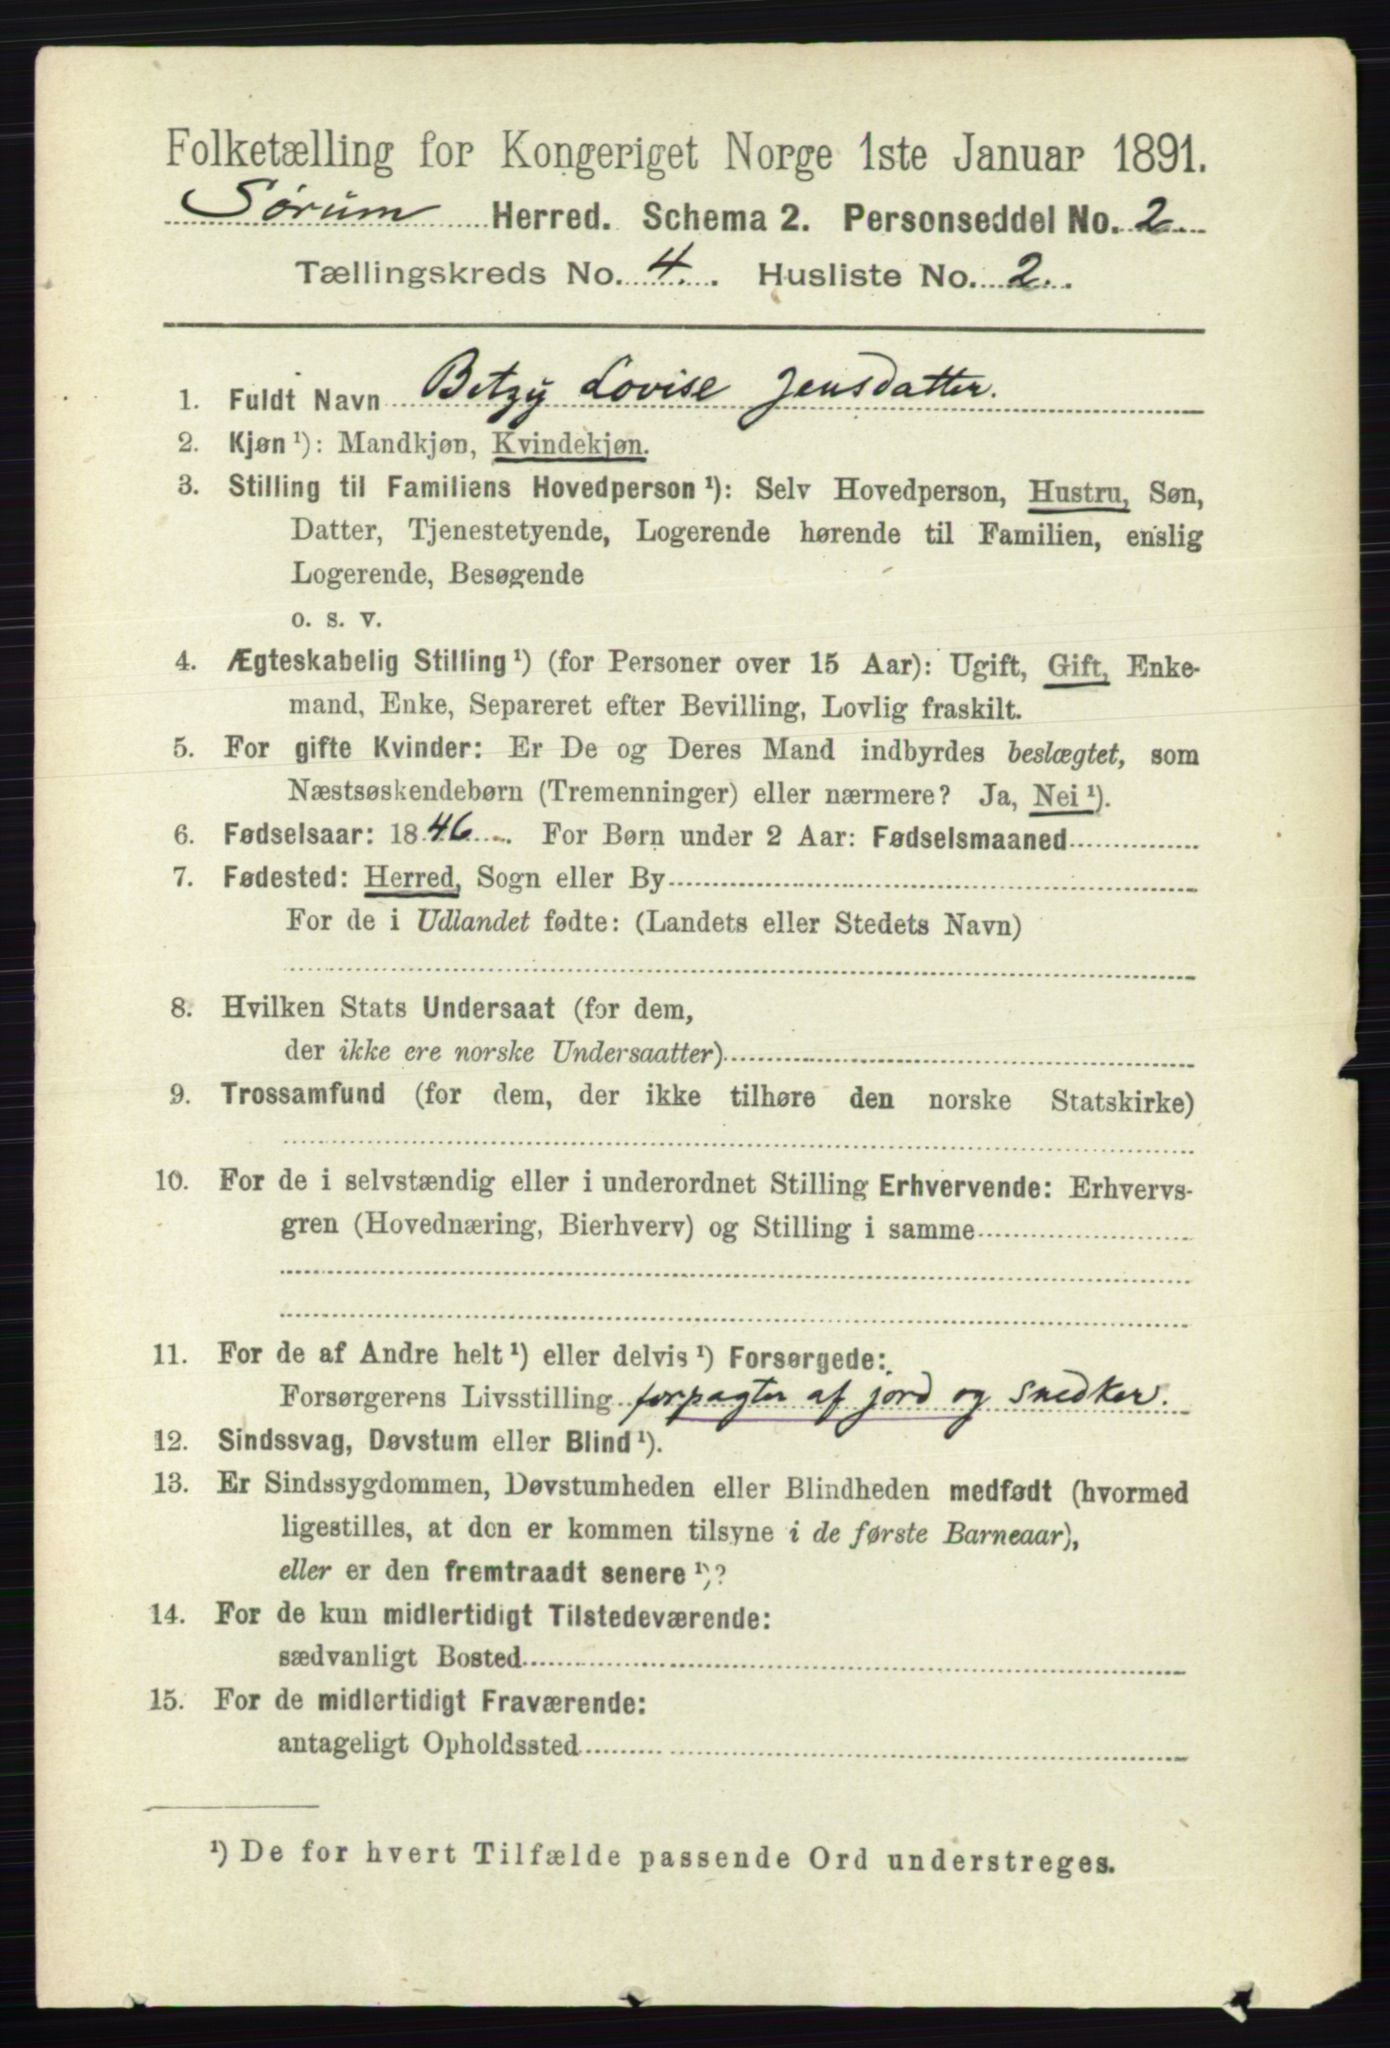 Folketælling for Kongeriget Norge 1ste Januar 1891.
Sørum Herred. Schema 2. Personseddel No. 2
Tællingskreds No. 4. Husliste No. 2.
1. Fuldt Navn Betzy Lovise Jensdatter.
2. Kjøn ¹): Mandkjøn, Kvindekjøn.
3. Stilling til Familiens Hovedperson ¹): Selv Hovedperson, Hustru, Søn,
Datter, Tjenestetyende, Logerende hørende til Familien, enslig
Logerende, Besøgende
o. s. v.
4. Ægteskabelig Stilling ¹) (for Personer over 15 Aar): Ugift, Gift, Enke-
mand, Enke, Separeret efter Bevilling, Lovlig fraskilt.
5. For gifte Kvinder: Er De og Deres Mand indbyrdes beslægtet, som
Næstsøskendebørn (Tremenninger) eller nærmere? Ja, Nei ¹).
6. Fødselsaar: 1846. For Børn under 2 Aar: Fødselsmaaned
7. Fødested: Herred, Sogn eller By
For de i Udlandet fødte: (Landets eller Stedets Navn)
8. Hvilken Stats Undersaat (for dem,
der ikke ere norske Undersaatter)
9. Trossamfund (for dem, der ikke tilhøre den norske Statskirke)
10. For de i selvstændig eller i underordnet Stilling Erhvervende: Erhvervs-
gren (Hovednæring, Bierhverv) og Stilling i samme
11. For de af Andre helt ¹) eller delvis ¹) Forsørgede:
Forsørgerens Livsstilling forpagter af jord og snedker.
12. Sindssvag, Døvstum eller Blind ¹).
13. Er Sindssygdommen, Døvstumheden eller Blindheden medfødt (hvormed
ligestilles, at den er kommen tilsyne i de første Barneaar),
eller er den fremtraadt senere ¹)?
14. For de kun midlertidigt Tilstedeværende:
sædvanligt Bosted
15. For de midlertidigt Fraværende:
antageligt Opholdssted
¹) De for hvert Tilfælde passende Ord understreges.